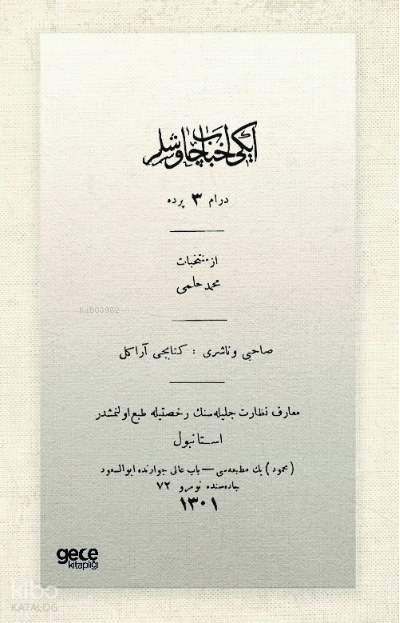 ایكی احباب چاوشلر
درام ٣ پرده
از منتخبات
محمد حلمی
KIB03982
صاحبی و ناشری : كتابجی آراكل
معارف نظارت جلیله‌سنك رخصتیله طبع اولنمشدر
استانبول
( محمود ) بك مطبعه‌سی — باب عالی جوارنده ابوالسعود
جاده‌سنده نومرو ٧٢
١٣٠١
gece
kitaplığı
kibo
KATALOG